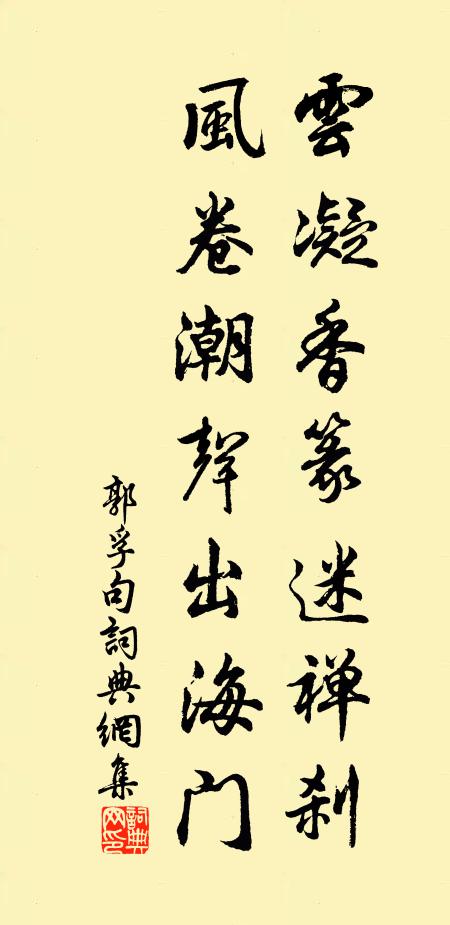 雲凝香篆迷禅刹
風卷潮聲出海門
郭孚句詞典網集
詞典網印